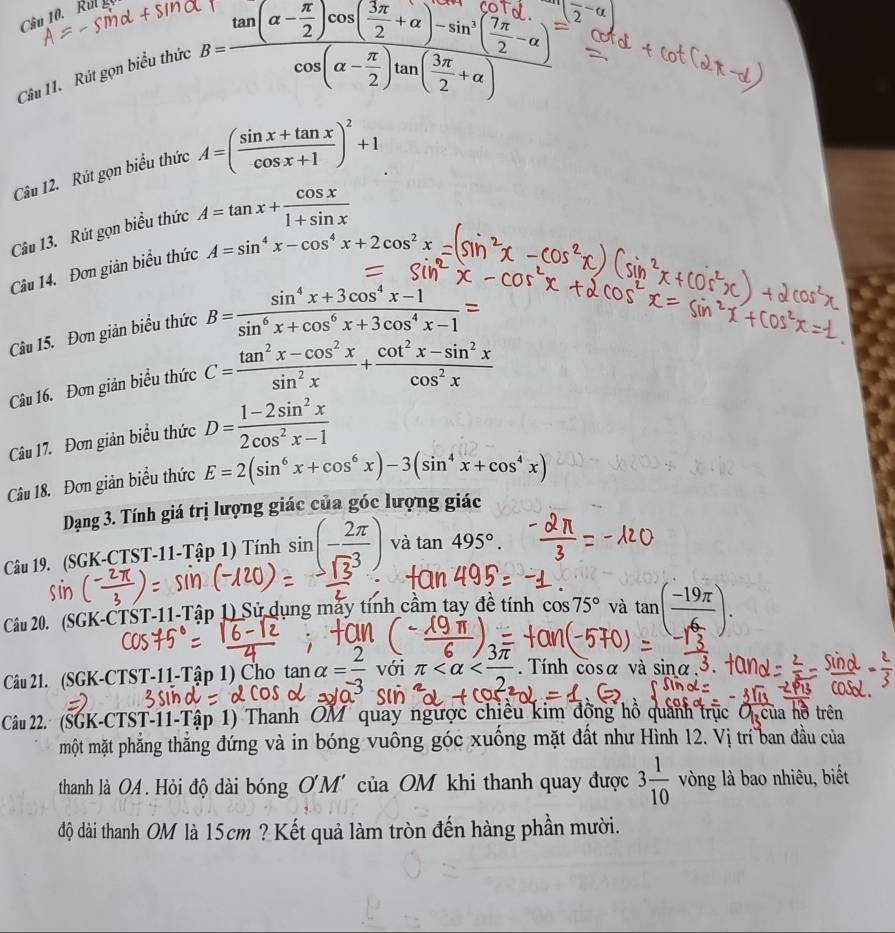 Câu 10. Rút g
A = -sinα + sinα
cotα.
= (π/2 - α)
= cotα + cot(2π-α)
Câu 11. Rút gọn biểu thức B = \frac{tan(α - \frac{π}{2}) cos(\frac{3π}{2} + α) - sin³(\frac{7π}{2} - α)}{cos(α - \frac{π}{2}) tan(\frac{3π}{2} + α)}
Câu 12. Rút gọn biểu thức A = (\frac{sin x + tan x}{cos x + 1})² + 1.
Câu 13. Rút gọn biểu thức A = tan x + \frac{cos x}{1 + sin x}
Câu 14. Đơn giản biểu thức A = sin⁴ x - cos⁴ x + 2cos² x = (sin²x - cos²x)(sin²x + cos²x) + 2cos²x
= sin²x - cos²x + 2cos²x = sin²x + cos²x = 1.
Câu 15. Đơn giản biểu thức B = \frac{sin⁴ x + 3cos⁴ x - 1}{sin⁶ x + cos⁶ x + 3cos⁴ x - 1} =
Câu 16. Đơn giản biểu thức C = \frac{tan² x - cos² x}{sin² x} + \frac{cot² x - sin² x}{cos² x}
Câu 17. Đơn giản biểu thức D = \frac{1 - 2sin² x}{2cos² x - 1}
Câu 18. Đơn giản biểu thức E = 2(sin⁶ x + cos⁶ x) - 3(sin⁴ x + cos⁴ x)
Dạng 3. Tính giá trị lượng giác của góc lượng giác
Câu 19. (SGK-CTST-11-Tập 1) Tính sin(-\frac{2π}{3}) và tan 495°. \frac{-2π}{3} = -120
sin(\frac{-2π}{3}) = sin(-120) = \frac{-√3}{2} . tan 495 = -1.
Câu 20. (SGK-CTST-11-Tập 1) Sử dụng máy tính cầm tay để tính cos 75° và tan(\frac{-19π}{6}).
cos 75° = \frac{√6-√2}{4} ; tan(-\frac{19π}{6}) = tan(-570) = \frac{-√3}{3}.
Câu 21. (SGK-CTST-11-Tập 1) Cho tan α = \frac{2}{3} với π < α < \frac{3π}{2}. Tính cosα và sinα. tanα = \frac{2}{3} = \frac{sinα}{cosα} = \frac{2}{3}
=) 3sinα = 2cosα sin²α + cos²α = 1 ⇔ { sinα = \frac{-2√13}{13} cosα = -\frac{3√13}{13}
Câu 22. (SGK-CTST-11-Tập 1) Thanh OM quay ngược chiều kim đồng hồ quanh trục O của nó trên
một mặt phẳng thẳng đứng và in bóng vuông góc xuống mặt đất như Hình 12. Vị trí ban đầu của
thanh là OA. Hỏi độ dài bóng O'M' của OM khi thanh quay được 3\frac{1}{10} vòng là bao nhiêu, biết
độ dài thanh OM là 15cm ? Kết quả làm tròn đến hàng phần mười.